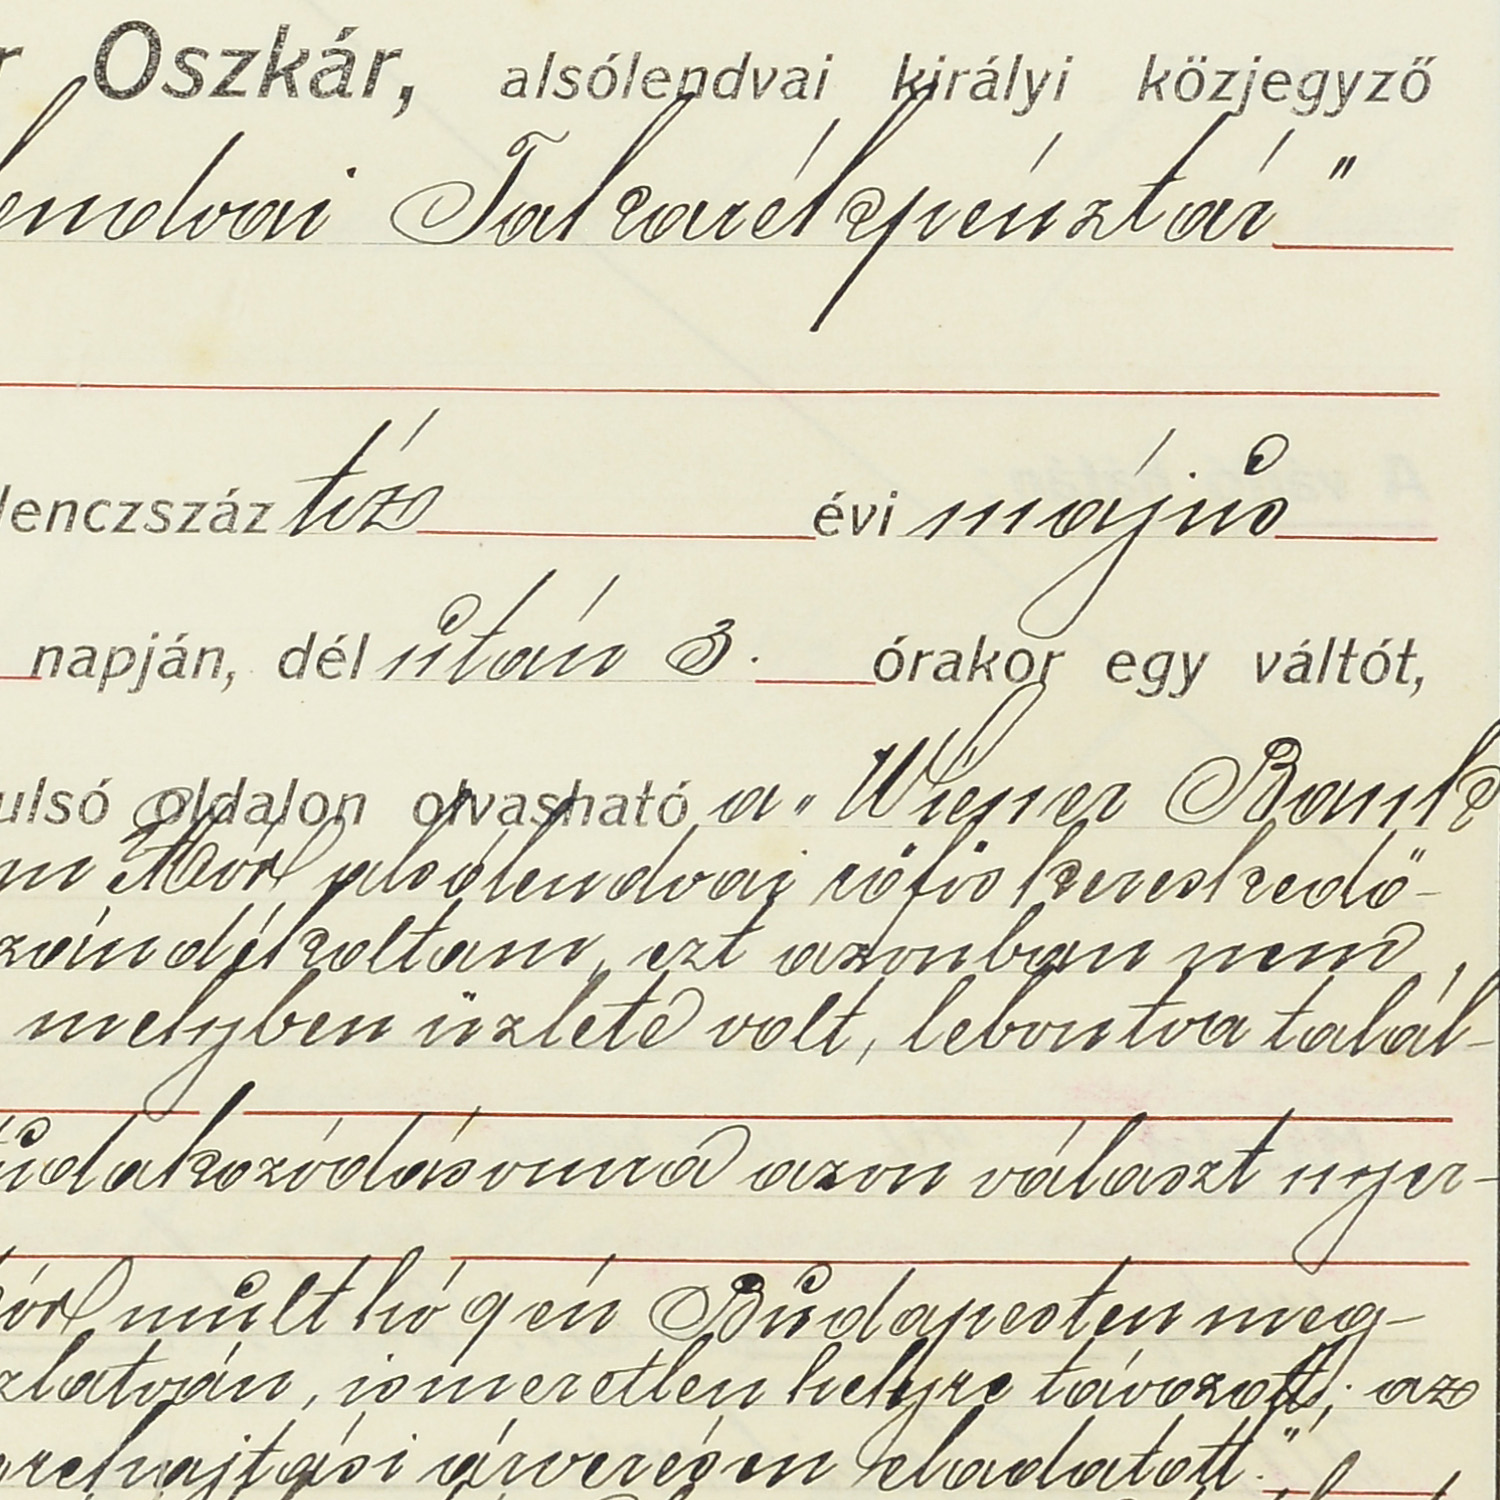 Oszkár, alsólendvai királyi közjegyző
lendvai Takarékpénztár"
lenczszáz tíz évi május
napján, dél után 3. órakor egy váltót,
ulsó oldalon olvasható a „Wiener Bank
Mór alsólendvai rőfös kereskedő-
zándékoltam, ezt azonban nem,
melyben üzlete volt, lebontva talál-
tudakozódásomra azon választ nyer-
Mór mult hó 9 én Budapesten meg-
zlatván, ismeretlen helyre távozott; az
végrehajtási árverésen eladatott."